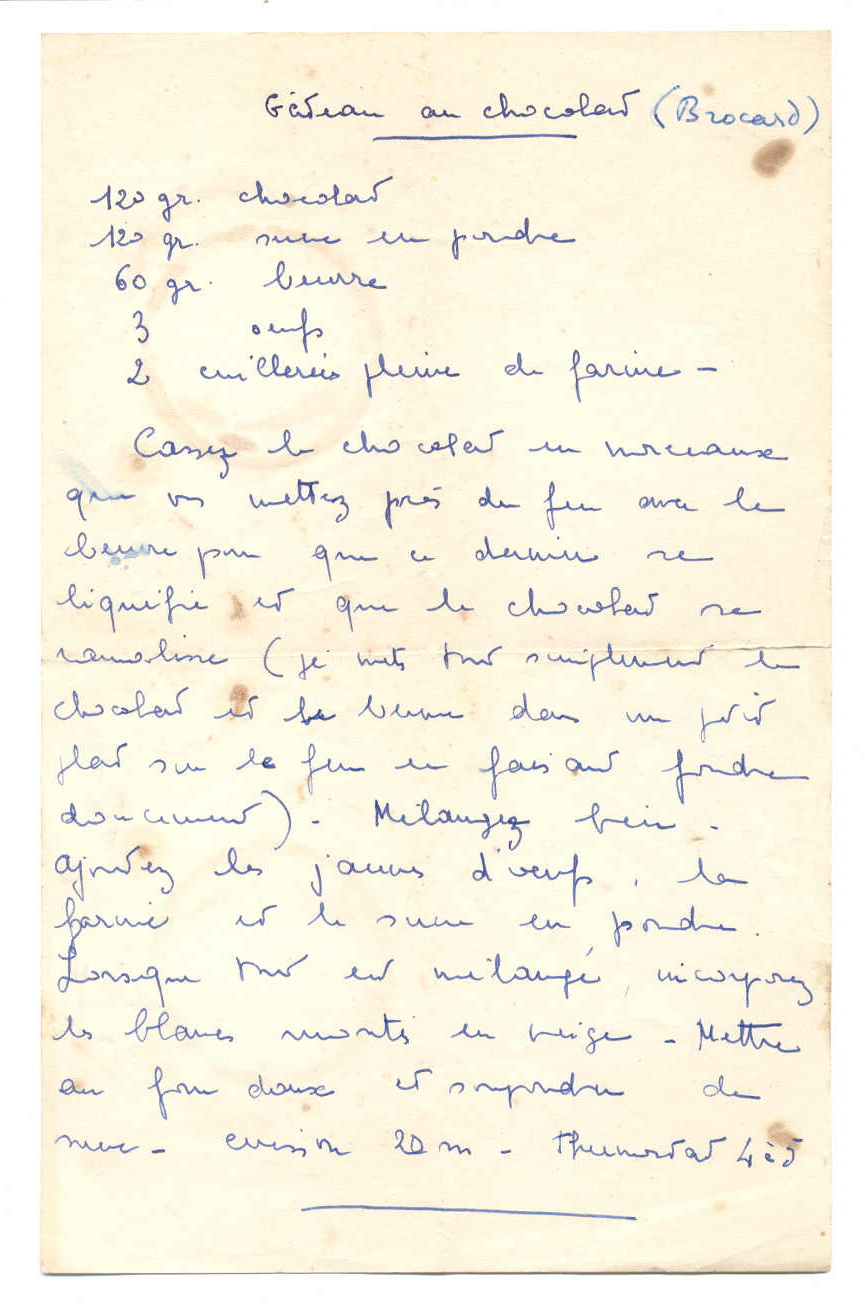 Gâteau au chocolat (Brocard)
120 gr. chocolat
120 gr. sucre en poudre
60 gr. beurre
3 oeufs
2 cuillerées pleine de farine -
Cassez le chocolat en morceaux
que vs mettez près du feu avec le
beurre pour que ce dernier se
liquifie et que le chocolat se
ramolisse (je mets tout simplement le
chocolat et le beurre dans un petit
plat sur le feu en faisant fondre
doucement). Mélangez bien.
Ajoutez les jaunes d'oeufs, la
farine et le sucre en poudre.
Lorsque tout est mélangé, incorporez
les blancs montés en neige - Mettre
au four doux et soupoudrer de
sucre - cuisson 20 m - Thermostat 4 à 5